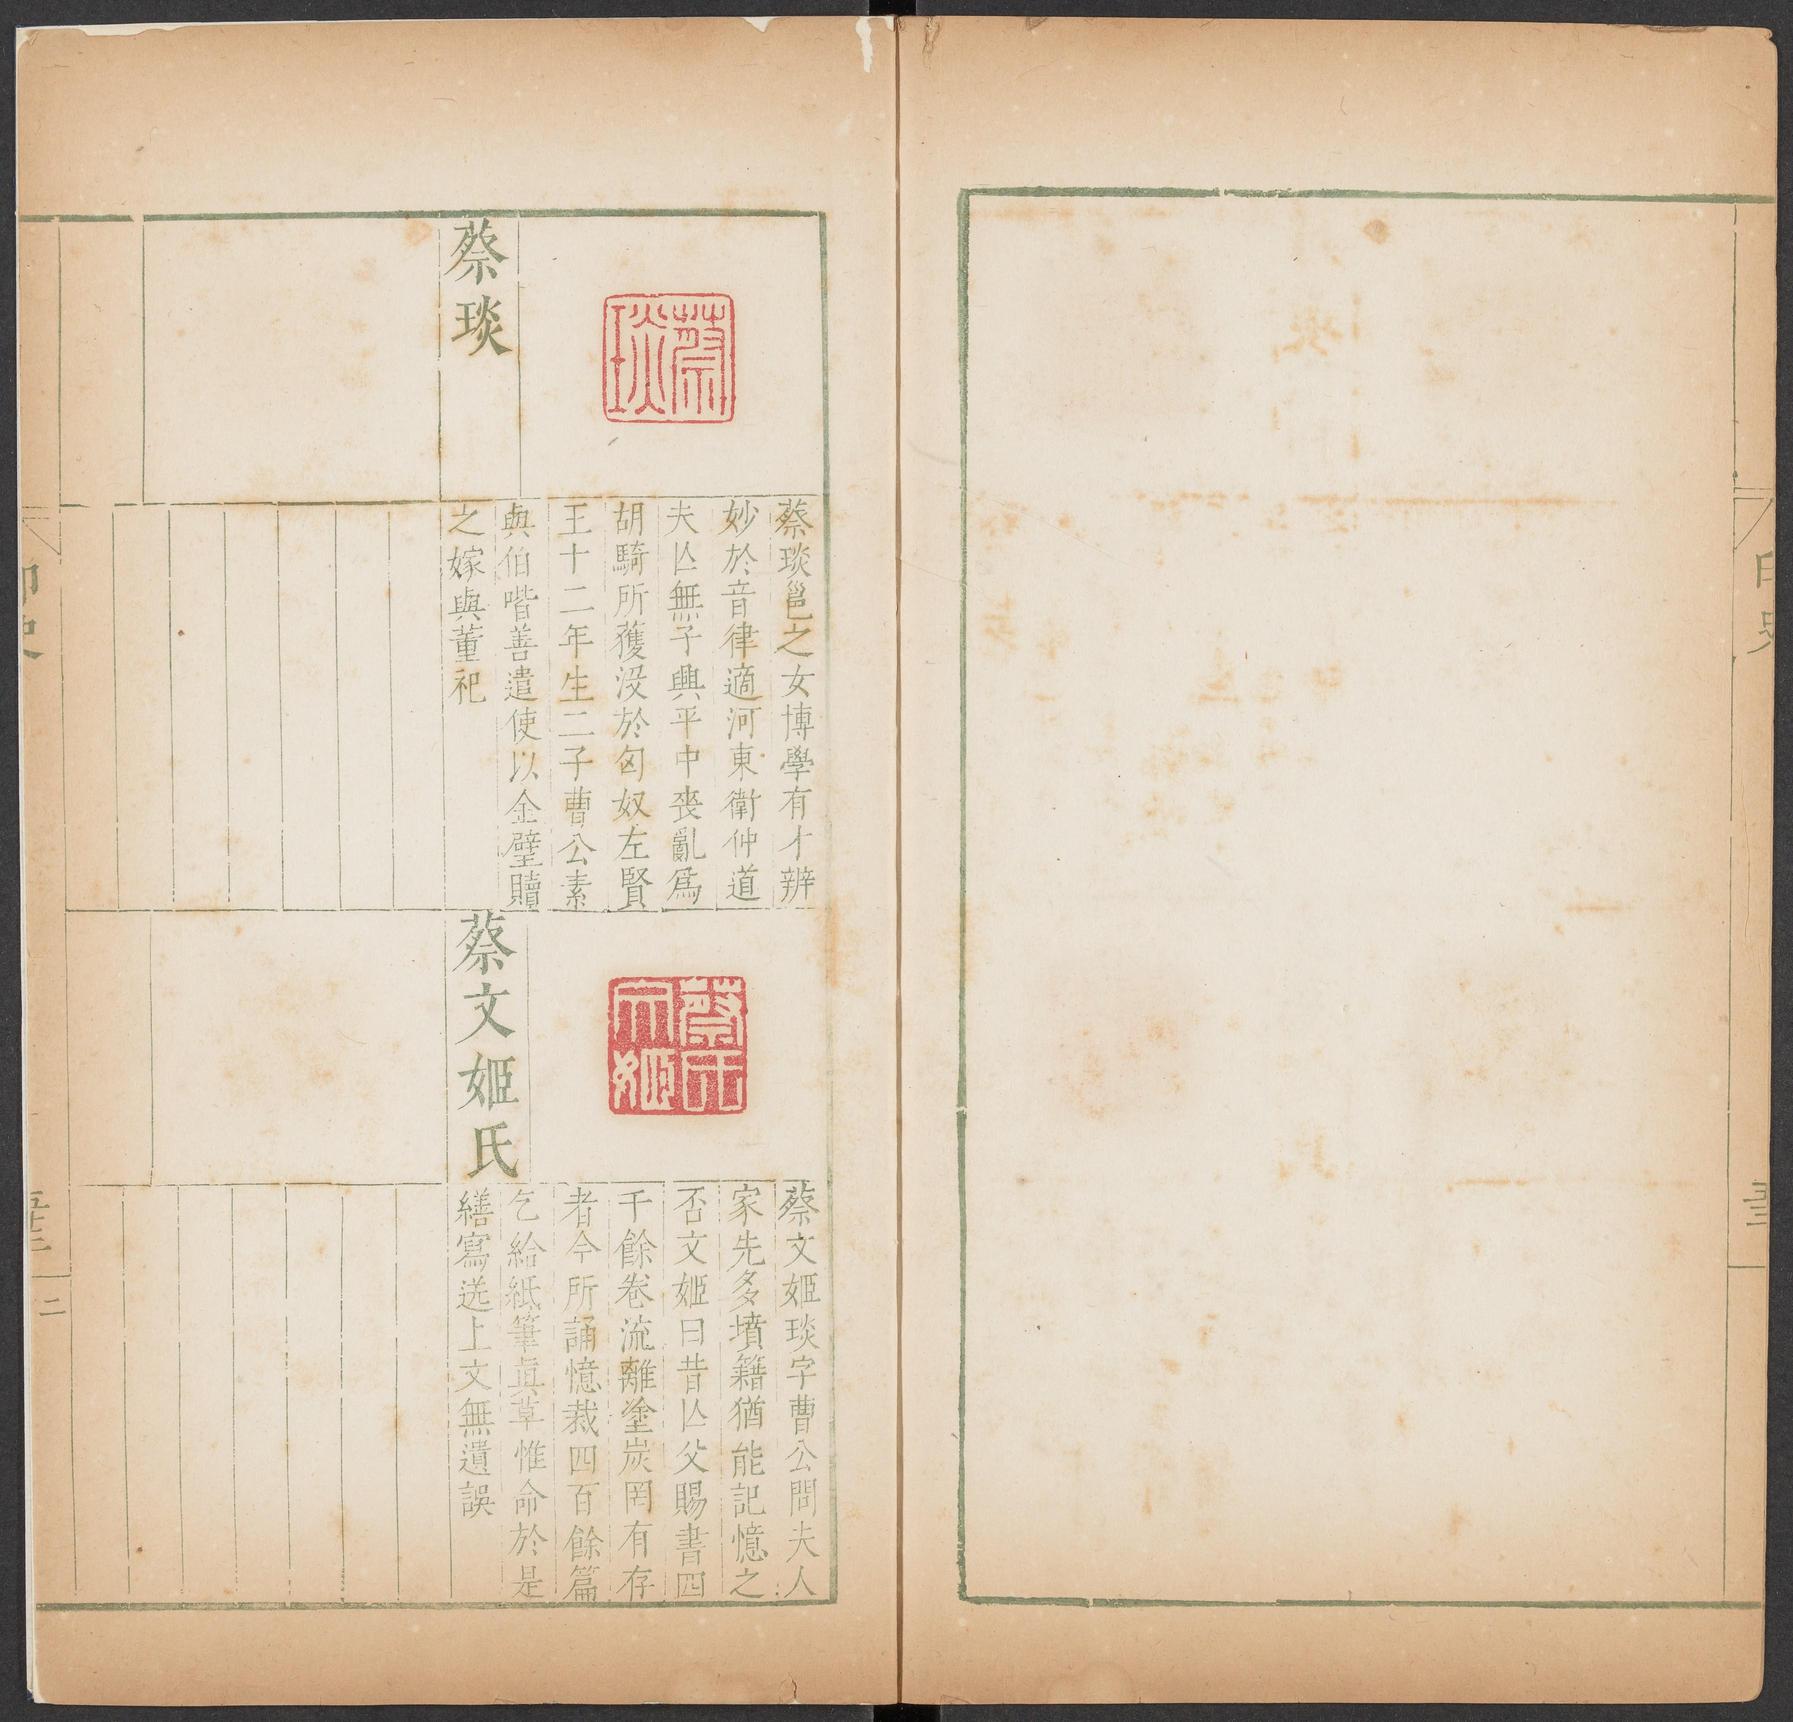 蔡琰
蔡琰
蔡琰邕之女博學有才辨
妙於音律適河東衛仲道
夫亾無子興平中喪亂爲
胡騎所獲没於匈奴左賢
王十二年生二子曹公素
與伯喈善遣使以金璧贖
之嫁與董祀
蔡氏文姬
蔡文姬氏
蔡文姬琰字曹公問夫人
家先多墳籍猶能記憶之
否文姬曰昔亾父賜書四
千餘卷流離塗炭罔有存
者今所誦憶裁四百餘篇
乞給紙筆眞草惟命於是
繕寫送上文無遺誤
印史
二